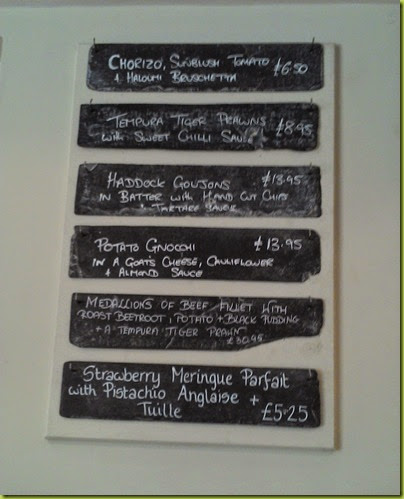 Chorizo, Sunblush Tomato
+ Haloumi Bruschetta £6.50
Tempura Tiger Prawns
with Sweet Chilli Sauce £8.95
Haddock Goujons £13.95
in Batter with Hand Cut Chips
+ Tartare Sauce
Potato Gnocchi £13.95
in a Goats Cheese, Cauliflower
+ Almond Sauce
Medallions of Beef Fillet with
Roast Beetroot, Potato + Black Pudding
+ a Tempura Tiger Prawn
£20.95
Strawberry Meringue Parfait
with Pistachio Anglaise +
Tuille £5.25